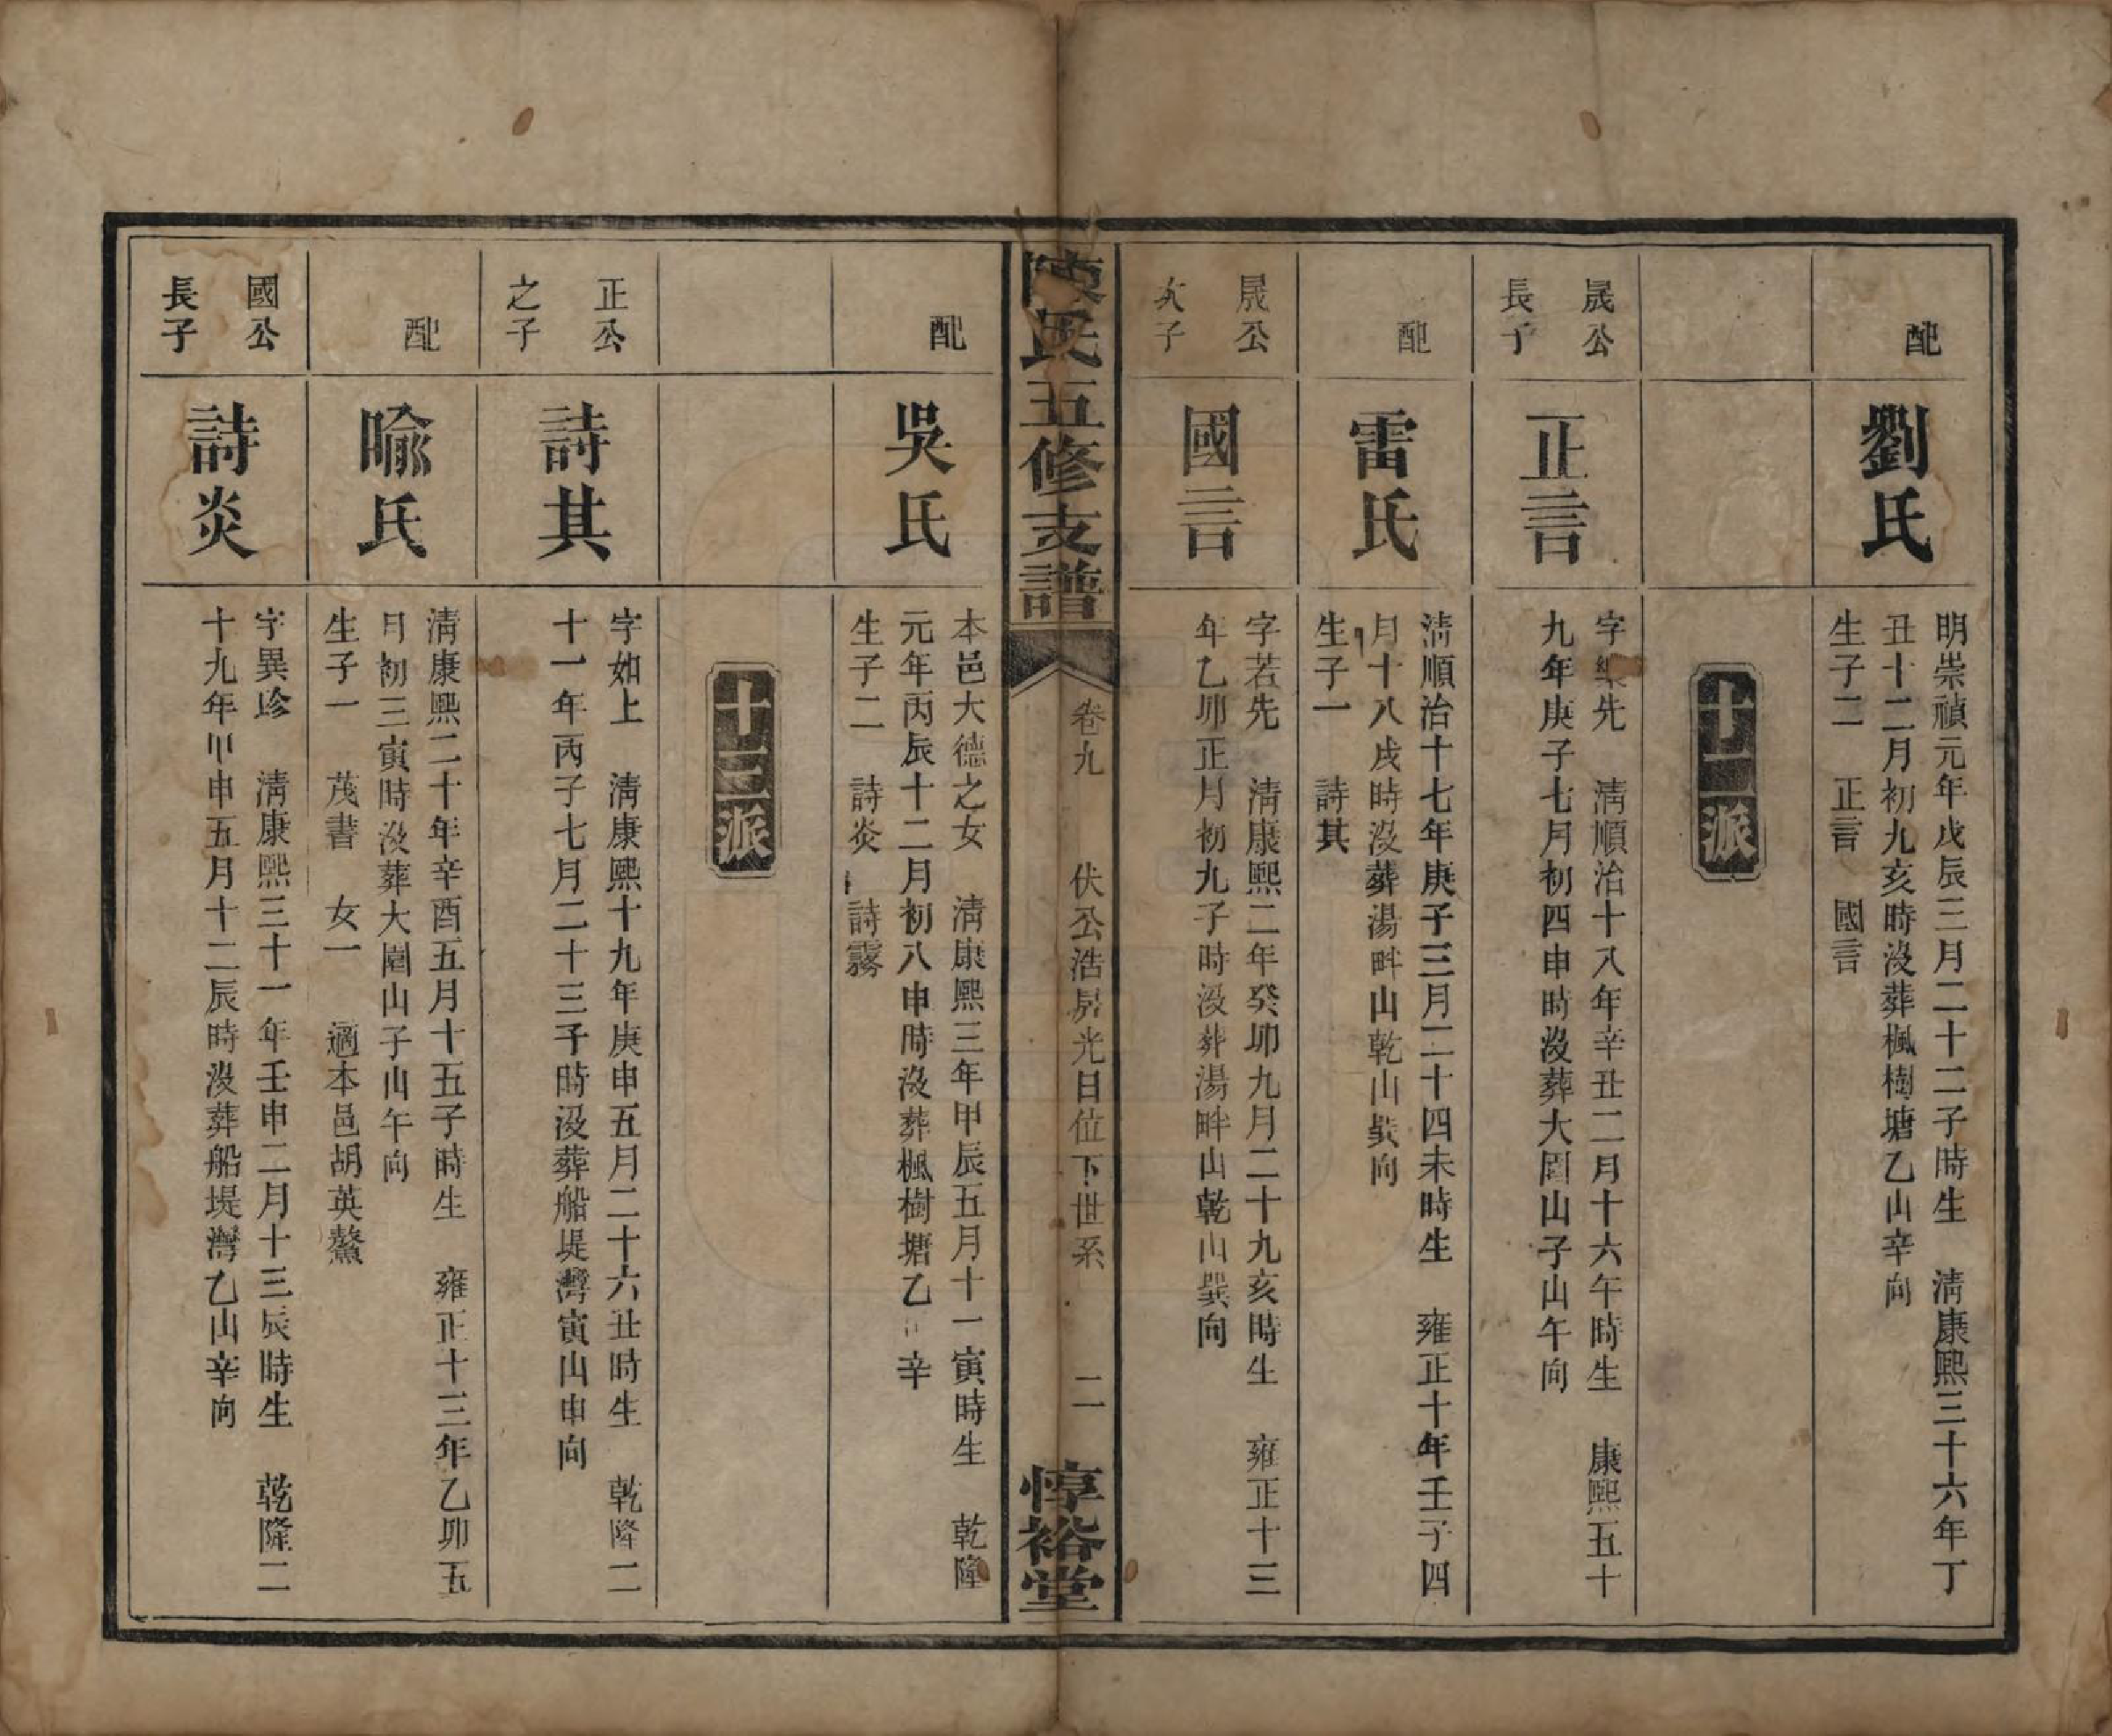 配
劉氏
明崇禎元年戊辰三月二十二子時生　清康熙三十六年丁
丑十二月初九亥時沒葬楓樹塘乙山辛向
生子二　正言　國言
十二派
晟公
長子
正言
字樂先　清順治十八年辛丑二月十六午時生　康熙五十
九年庚子七月初四申時沒葬大園山子山午向
配
雷氏
清順治十七年庚子三月二十四未時生　雍正十年壬子四
月十八戌時沒葬湯畔山乾山巽向
生子一　詩其
晟公
次子
國言
字若先　清康熙二年癸卯九月二十九亥時生　雍正十三
年乙卯正月初九子時沒葬湯畔山乾山巽向
陳氏五修支譜
卷九　伏公浩昴光日位下世系　二
惇裕堂
配
吳氏
本邑大德之女　清康熙三年甲辰五月十一寅時生　乾隆
元年丙辰十二月初八申時沒葬楓樹塘乙山辛
生子二　詩炎　詩霧
十三派
正公
之子
詩其
字如上　清康熙十九年庚申五月二十六丑時生　乾隆二
十一年丙子七月二十三子時沒葬船堤灣寅山申向
配
喩氏
清康熙二十年辛酉五月十五子時生　雍正十三年乙卯五
月初三寅時沒葬大園山子山午向
生子一　茂書　女一　適本邑胡英鰲
國公
長子
詩炎
字異珍　清康熙三十一年壬申二月十三辰時生　乾隆二
十九年甲申五月十二辰時沒葬船堤灣乙山辛向